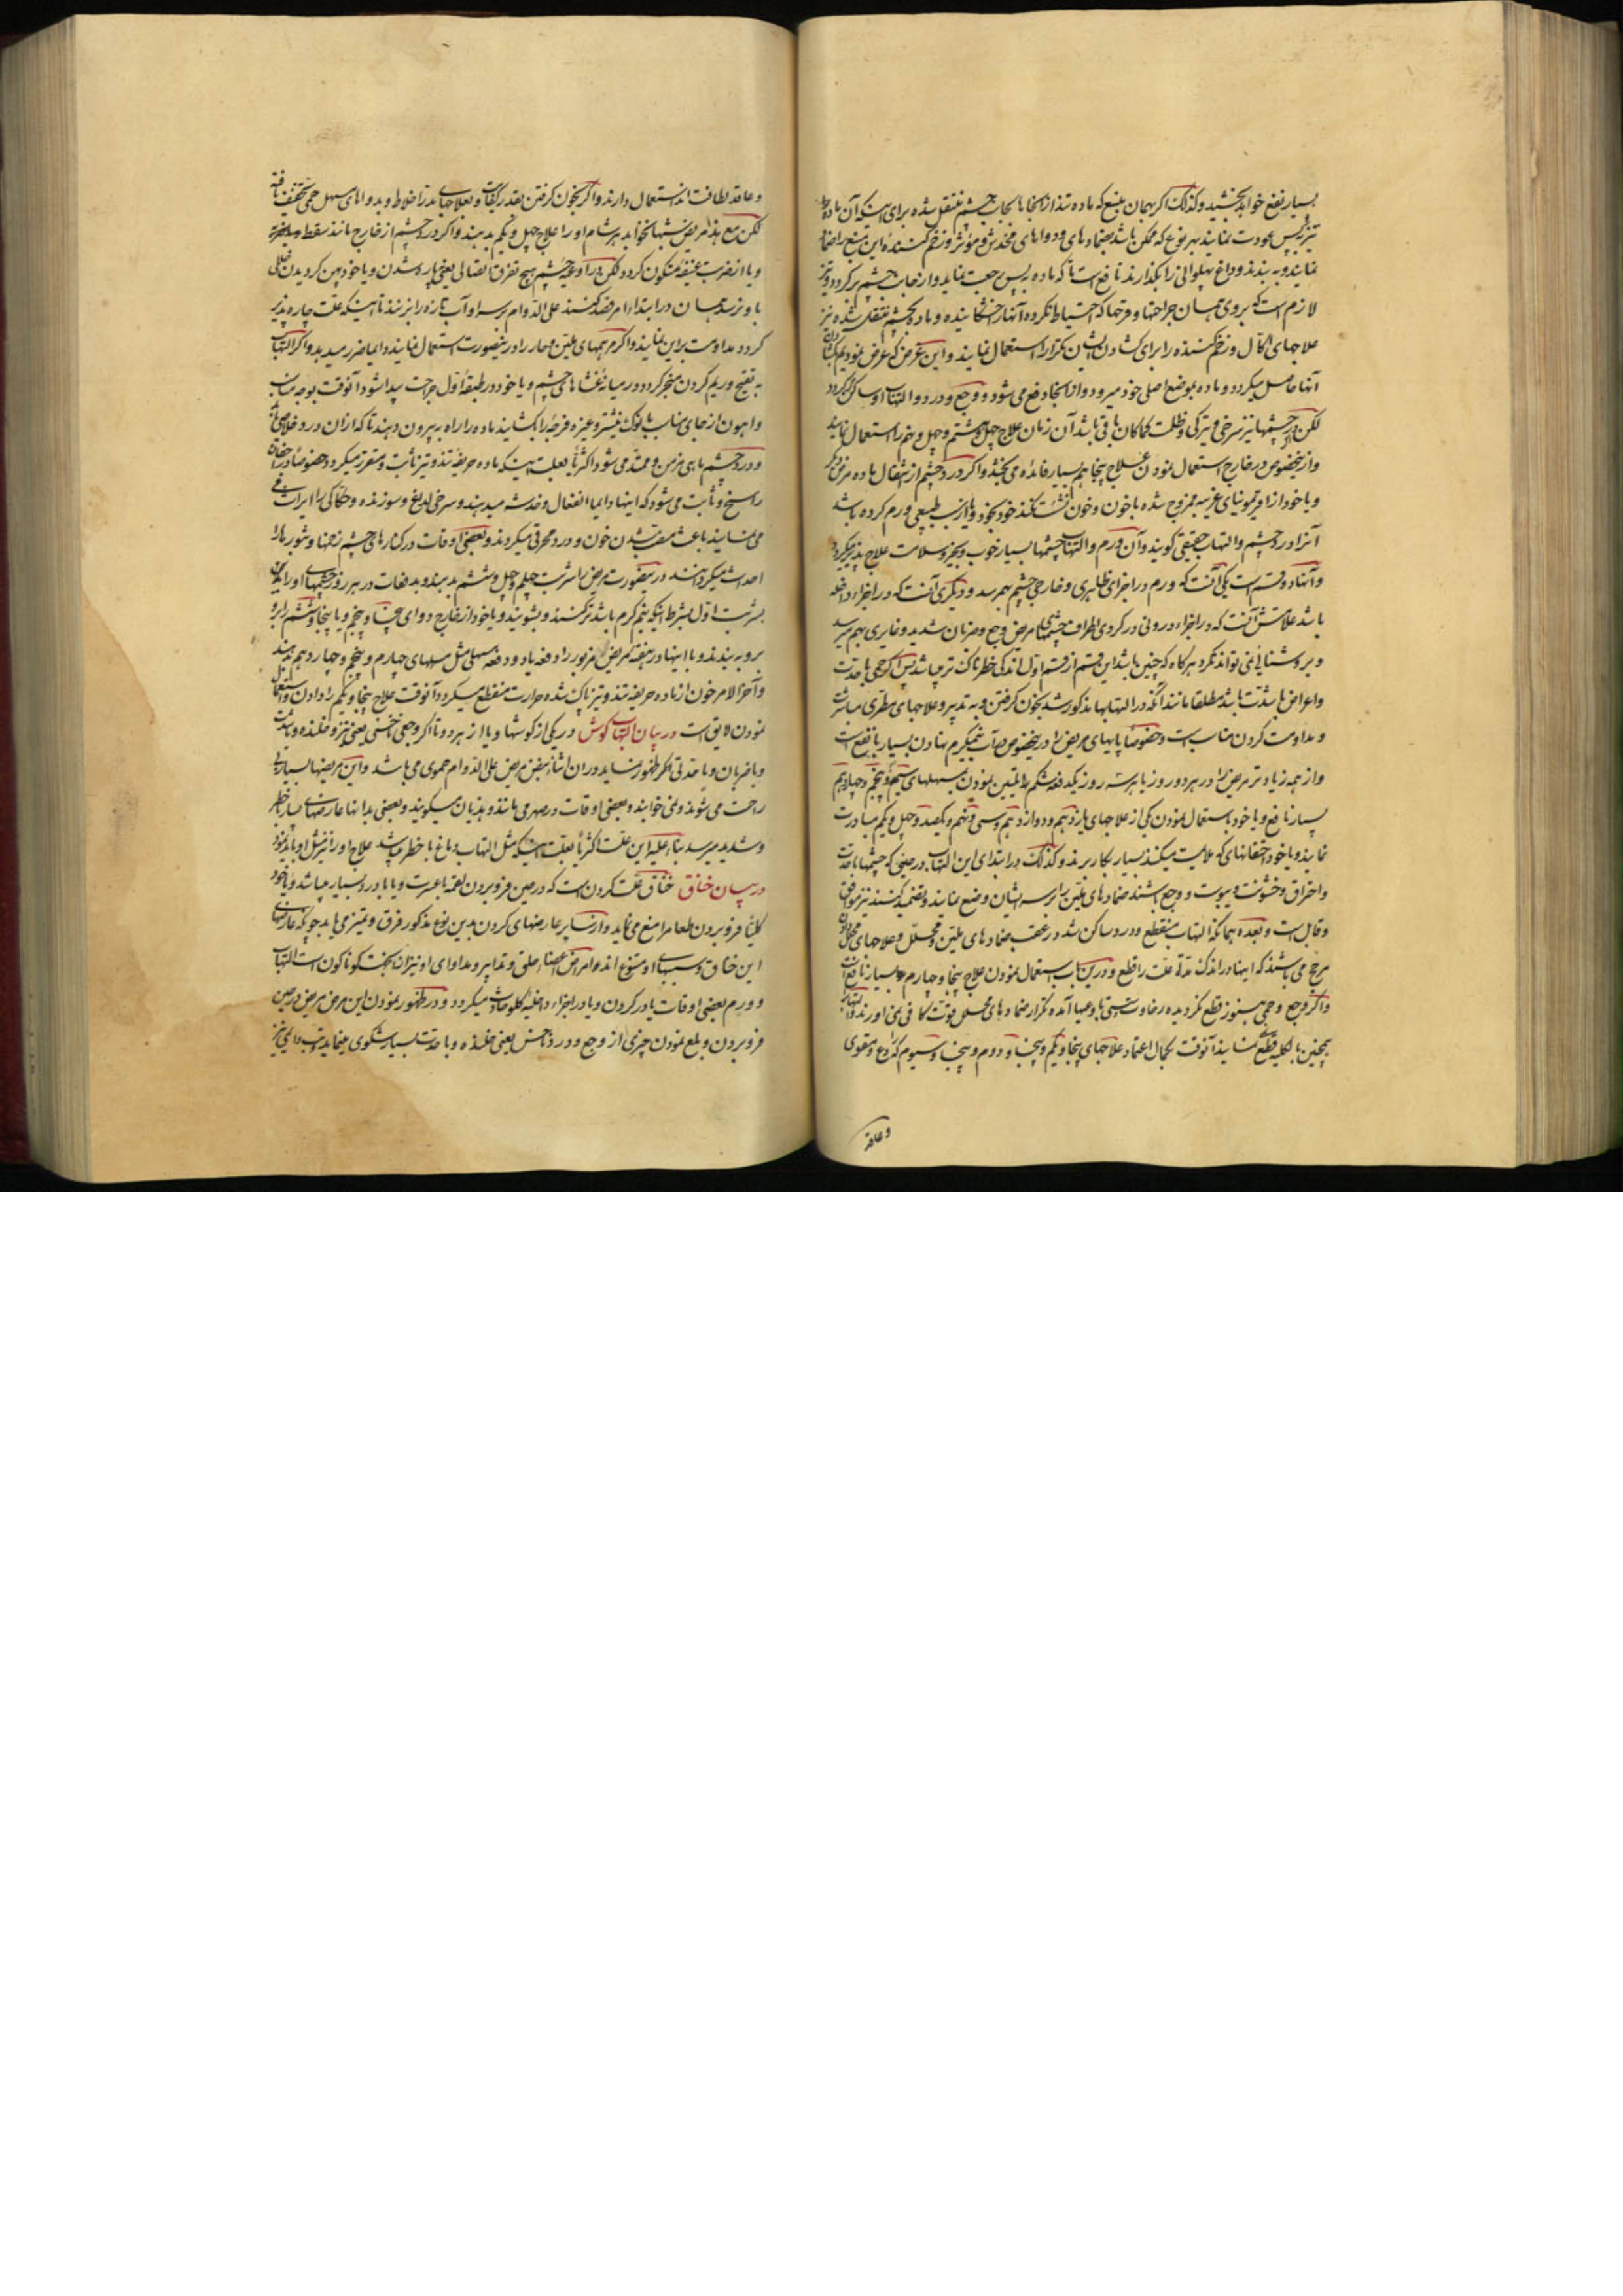 بسیار نفع خواهد بخشید و کذلک اگر بهمان منبع که ماده تند از آنجا بجانب چشم منتقل شده برای اینکه آن ماده
تیز بپس عودت نمایند بهر نوع که ممکن باشد ضمادهای و دواهای مخدش و مؤثر و زخم کننده این منبع را ضماد
نمایند و به بندند و داغ پهلوانی را بگذارند نافع است تا که ماده به پس رجعت نماید و از جانب چشم برگردد و نیز
لازم است که بروی همان جراحتها و قرحها که احتیاط نکرده آنها را خشکانیده و ماده بچشم منتقل شده نیز
علاجهای اکال و زخم کننده را برای کشادن ایشان تکرار استعمال نمایند و این غرض که عرض نمودیم
آنها حاصل میگردد و ماده بموضع اصلی خود میرود و از آنجا دفع می شود و وجع و درد و التهاب او ساکن گردد
لکن در چشمها نیز سرخی و تیرکی و ظلمت کماکان باقی باشد آن زمان علاج چهل و هشتم و چهل و نهم را استعمال نمایند
و از بخصوص در خارج استعمال نمودن علاج پنجاهم بسیار فائده می بخشد و اگر درد چشم از انتقال ماده مرض دیگر
و یا خود از اخلاط غریبه ممزوج شده با خون و خون خود بخود و یا از سبب طبیعی ورم کرده باشد
آنرا درد چشم و التهاب حقیقی گویند و آن ورم و التهاب چشمها بسیار خوب و بخیر و سلامت علاج پذیر میگردد
و آنها دو قسم است یکی آنست که ورم در اجزای ظاهری و خارجی چشم بهمرسد و دیگری آنست که در اجزاء داخله
باشد علامتش آنست که در اجزاء درونی در گردی اطراف چشمهای مریض وجع و ضربان شدید و غایری بهم میرسد
و بروشنائی نمی تواند نگرد هرگاه که چنین باشد این قسم از قسم اول اندکی خطرناک تر میباشد پس اگر حمی با حدت
و اعراض با شدت باشد مطلقا مانند آنکه در التهابها مذکور شد بخون گرفتن و به تدبیر و علاجهای مطری مباشرت
و مداومت کردن مناسب است و خصوصا پایهای مریض را در بخصوص در آب نیم گرم نهادن بسیار با نفع است
و از همه زیادتر مریض را در هر دو روز یا هر سه روز یکدفعه شکم را تلیین نمودن بمسهلهای سیم و پنجم و چهاردهم
بسیار نافع و یا خود باستعمال نمودن یکی از علاجهای یازدهم و دوازدهم و سی و پنجم و یکصد و چهل و یکم مبادرت
نمایند و یا خود احتقانهای که ملایمت میکنند بسیار بکار برند و کذلک در ابتدای این التهاب در حینی که چشمها با حدت
و احتراق و خشونت و یبوست و وجع باشند ضمادهای ملین را بر سر ایشان وضع نمایند و تضمید کنند نیز موافق
و قابل است و بعده همانکه التهاب منقطع و درد ساکن شد در عقب ضمادهای ملین و محلل و علاجهای محلل
مرجح می باشند که اینها در اندک مدة علت را قطع و درین باب استعمال نمودن علاج پنجاه و چهارم بسیار نافع است
و اگر وجع و حمی هنوز قطع نگردیده رخاوت نسبتی بآنها آمده تکرار ضمادهای محلل قوت کافی نمی آورند
همچنین بالکلیه قطع نمایند آنوقت بکمال اعتماد علاجهای پنجاه و یکم و پنجاه و دوم و پنجاه و سیوم که رادع و مقوی
و عاقد
و عاقد لطافت اند استعمال دارند و اگر بخون گرفتن بقدر کفایت و بعلاجهای تبدیل اخلاط و بدواهای مسهل حمی تخفیف یافته
لکن مع هذا مریض شبها نخوابد هر شام او را علاج چهل و یکم بدهند و اگر درد چشم از خارج مانند سقطه و یا ضربه
و یا از ضربت عنیفه متکون گردد لکن در او عیه چشم هیچ تفرق اتصالی یعنی پاره شدن و یا خود پهن گردیدن خللی
باو نرسد همان در ابتداء امر فصد کنند علی الدوام بر سر او آب تازه را بریزند تا اینکه علت چاره پذیر
گردد مداومت بر این نمایند و اگر مرهمهای ملین و حار را در اینصورت استعمال نمایند دایما ضرر میدهد و اگر التهاب
به تفتیح و ریم کردن منجر گردد و در میانه غشاهای چشم و یا خود در طبقه اول جراحت پیدا شود آنوقت بوجه مناسب
و اهون از جای مناسب با نوک نیشتر و غیره قرحه را بکشایند ماده را راه به بیرون دهند تا که از آن درد خلاصی یابد
و درد چشم گاهی مزمن و ممتد می شود اکثریا بعلت اینکه ماده حریفه تند و تیز ثابت و متقرر میگردد خصوصا در جفنها
راسخ و ثابت می شود که اینها دایما انفعال و خدشه میدهند و سرخی لداغ و سوزنده و حکاکی را ایراث
می نمایند باعث منصب شدن خون و درد محرقی میگردند و بعضی اوقات در کنارهای چشم زخمها و بثورها را
احداث میگردانند در اینصورت مریض را شربت چهلم و چهل و ششم بدهند و بدفعات در هر روز چشمهای او را باین
بشربت اول بشرط اینکه نیم گرم باشد تر کنند و بشویند و یا خود از خارج دوای پنجاه و پنجم و یا پنجاه و ششم را برو
برو به بندند و با اینها در هفته مریض مزبور را دفعه یا دو دفعه مسهلی مثل مسهلهای چهارم و پنجم و چهاردهم بدهند
و آخر الامر خون از ماده حریفه تند و تیز پاک شده حرارت منقطع میگردد آنوقت علاج پنجاه و یکم را دادن و استعمال
نمودن لایق است در بیان التهاب گوش در یکی از گوشها و یا از هر دوتا اگر وجعی ناخسی یعنی تیز و خلنده و با شدت
و با ضربان و با حدتی مکر ظهور نماید در آن اثنا نبض مریض علی الدوام حموی می باشد و این مریضها بسیار بی
راحت می شوند و نمی خوابند و بعضی اوقات در صهر می مانند و هذیان میگویند و بعضی بدانها عارضهای با خطر
و شدید میرسد بناء علیه این علت اکثریا بعلت اینکه مثل التهاب دماغ با خطر میباشد علاج او را نیز مثل او باید نمود
در بیان خناق خناق علت گردن است که در حین فرو بردن لقمه با عسرت و یا با درد بسیار میباشد و یا خود
کلیا فرو بردن طعام را منع می نماید و از سایر عارضهای گردن بدین نوع مذکور فرق و تمیز می یابد چونکه عارضهای
این خناق و سببهای او متنوع اند و امراض اعضاء حلق و تدابیر و مداوای او نیز از این جهت گوناگون است التهاب
و ورم بعضی اوقات یا در گردن و یا در اجزاء داخلیه گلو حادث میگردد و در ظهور نمودن این مرض مریض در حین
فرو بردن و بلع نمودن چیزی از وجع و درد ناخس یعنی خلنده و با حدت بسیار شکوی مینماید و تب دایمی نیز